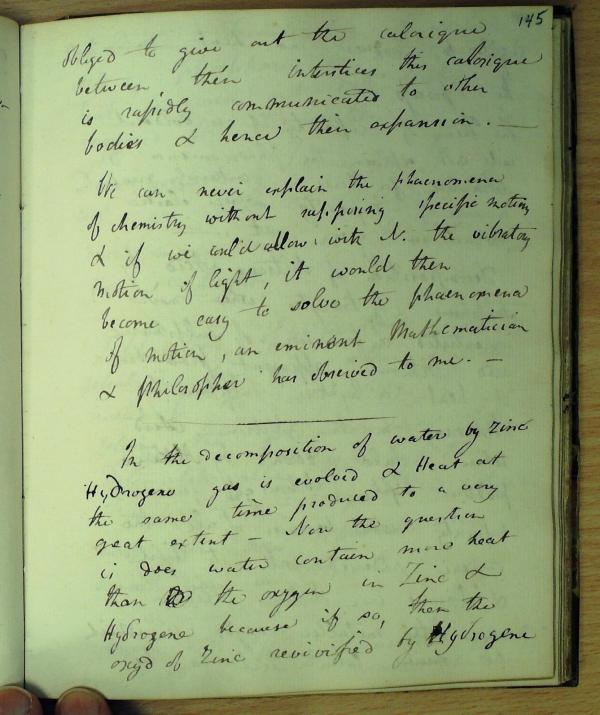 145
obliged to give out the calorique
between their interstices this calorique
is rapidly communicated to other
bodies & hence their expansion. —
We can never explain the phaenomena
of chemistry without supposing specific motions
& if we could allow with N. the vibratory
motion of light, it would then
become easy to solve the phaenomena
of motion, an eminent Mathematician
& philosopher has observed to me. —
In the decomposition of water by Zinc
Hydrogene gas is evolved & Heat at
the same time produced to a very
great extent — Now the question
is does water contain more heat
than the oxygen in Zinc &
Hydrogene because if so, then the
oxyd of Zinc revivified by Hydrogene